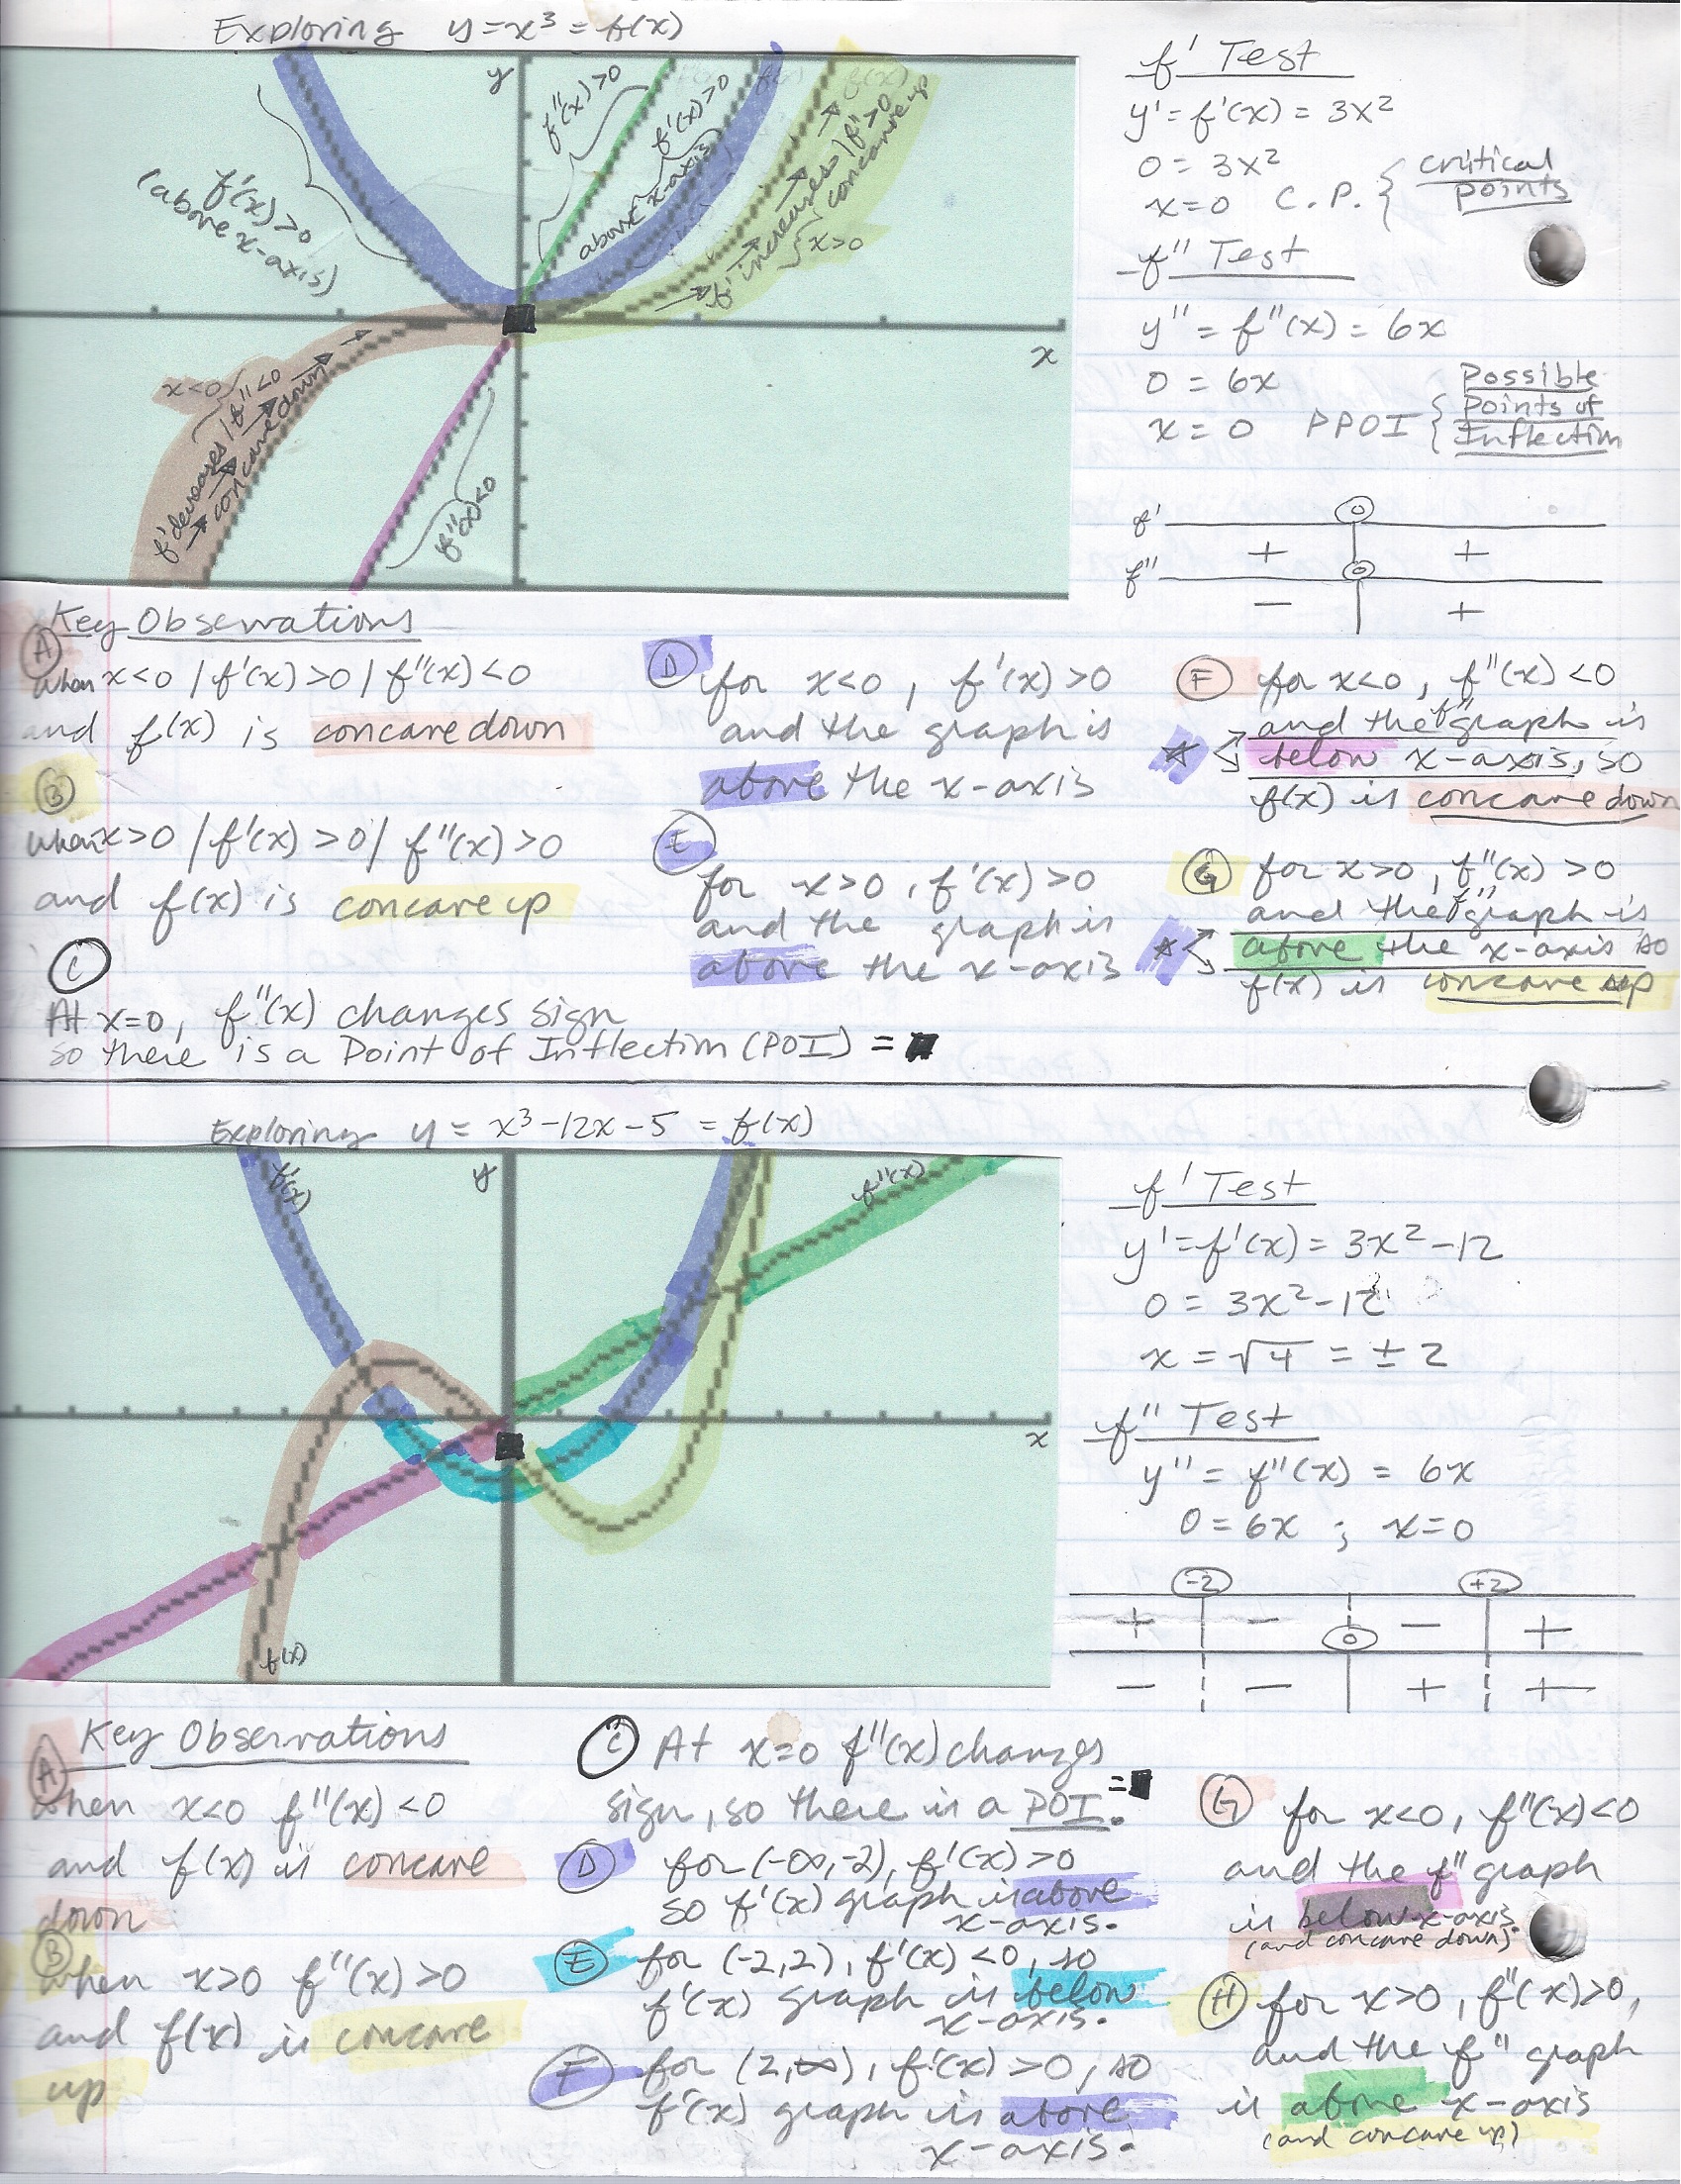 Exploring y=x³=f(x)
y
f''(x)>0
f'(x)>0
above x-axis
f(x)
f'(x)>0
(above x-axis)
f' increases / f''>0
concave up
x>0
x
x<0
f' decreases / f''<0
concave down
f''(x)<0
f' Test
y'=f'(x) = 3x²
0 = 3x²
x=0 C.P. { critical points
f'' Test
y'' = f''(x) = 6x
0 = 6x
x = 0 PPOI { Possible Points of Inflection
f' 0
+ +
f'' 0
− +
Key Observations
A
When x<0 / f'(x)>0 / f''(x)<0
and f(x) is concave down
B
When x>0 / f'(x)>0 / f''(x)>0
and f(x) is concave up
C
At x=0, f''(x) changes sign
so there is a Point of Inflection (POI) = ■
D
for x<0, f'(x)>0
and the graph is
above the x-axis
E
for x>0, f'(x)>0
and the graph is
above the x-axis
F for x<0, f''(x)<0
and the f'' graph is
below x-axis, so
f(x) is concave down
G for x>0, f''(x)>0
and the f'' graph is
above the x-axis so
f(x) is concave up
Exploring y = x³-12x-5 = f(x)
f'(x)
y
f''(x)
x
f(x)
f' Test
y'=f'(x) = 3x²-12
0 = 3x²-12
x = √4 = ± 2
f'' Test
y'' = f''(x) = 6x
0=6x ; x=0
-2 +2
+ − − +
0
− − + +
Key Observations
A
when x<0 f''(x)<0
and f(x) is concave
down
B
when x>0 f''(x)>0
and f(x) is concave
up
C At x=0 f''(x) changes
sign, so there is a POI. = ■
D for (-∞,-2), f'(x)>0
so f'(x) graph is above
x-axis.
E for (-2,2), f'(x)<0, so
f'(x) graph is below
x-axis.
F for (2,∞), f'(x)>0, so
f'(x) graph is above
x-axis.
G for x<0, f''(x)<0
and the f'' graph
is below x-axis.
(and concave down)
H for x>0, f''(x)>0,
and the f'' graph
is above x-axis
(and concave up)